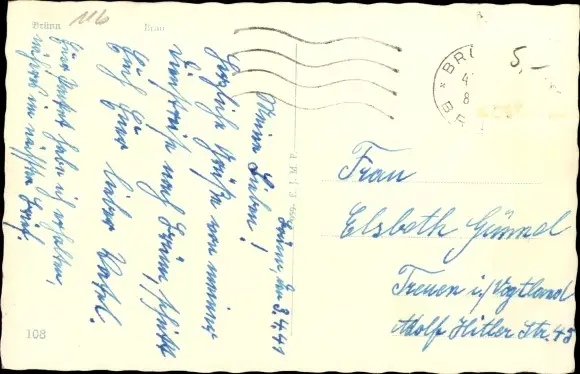 Brünn
Brno
116
5,-
BRÜ
4
8
Brünn, den 3.4.41
Meine Lieben!
Herzliche Grüße von meiner
Dienstreise nach Brünn, schickt
Euch Euer lieber
Euer habe ich erhalten,
näheres im nächsten Brief.
Frau
Elsbeth Günnel
Treuen i./Vogtland
Adolf Hitler Str. 45
E. J. M. P.
108